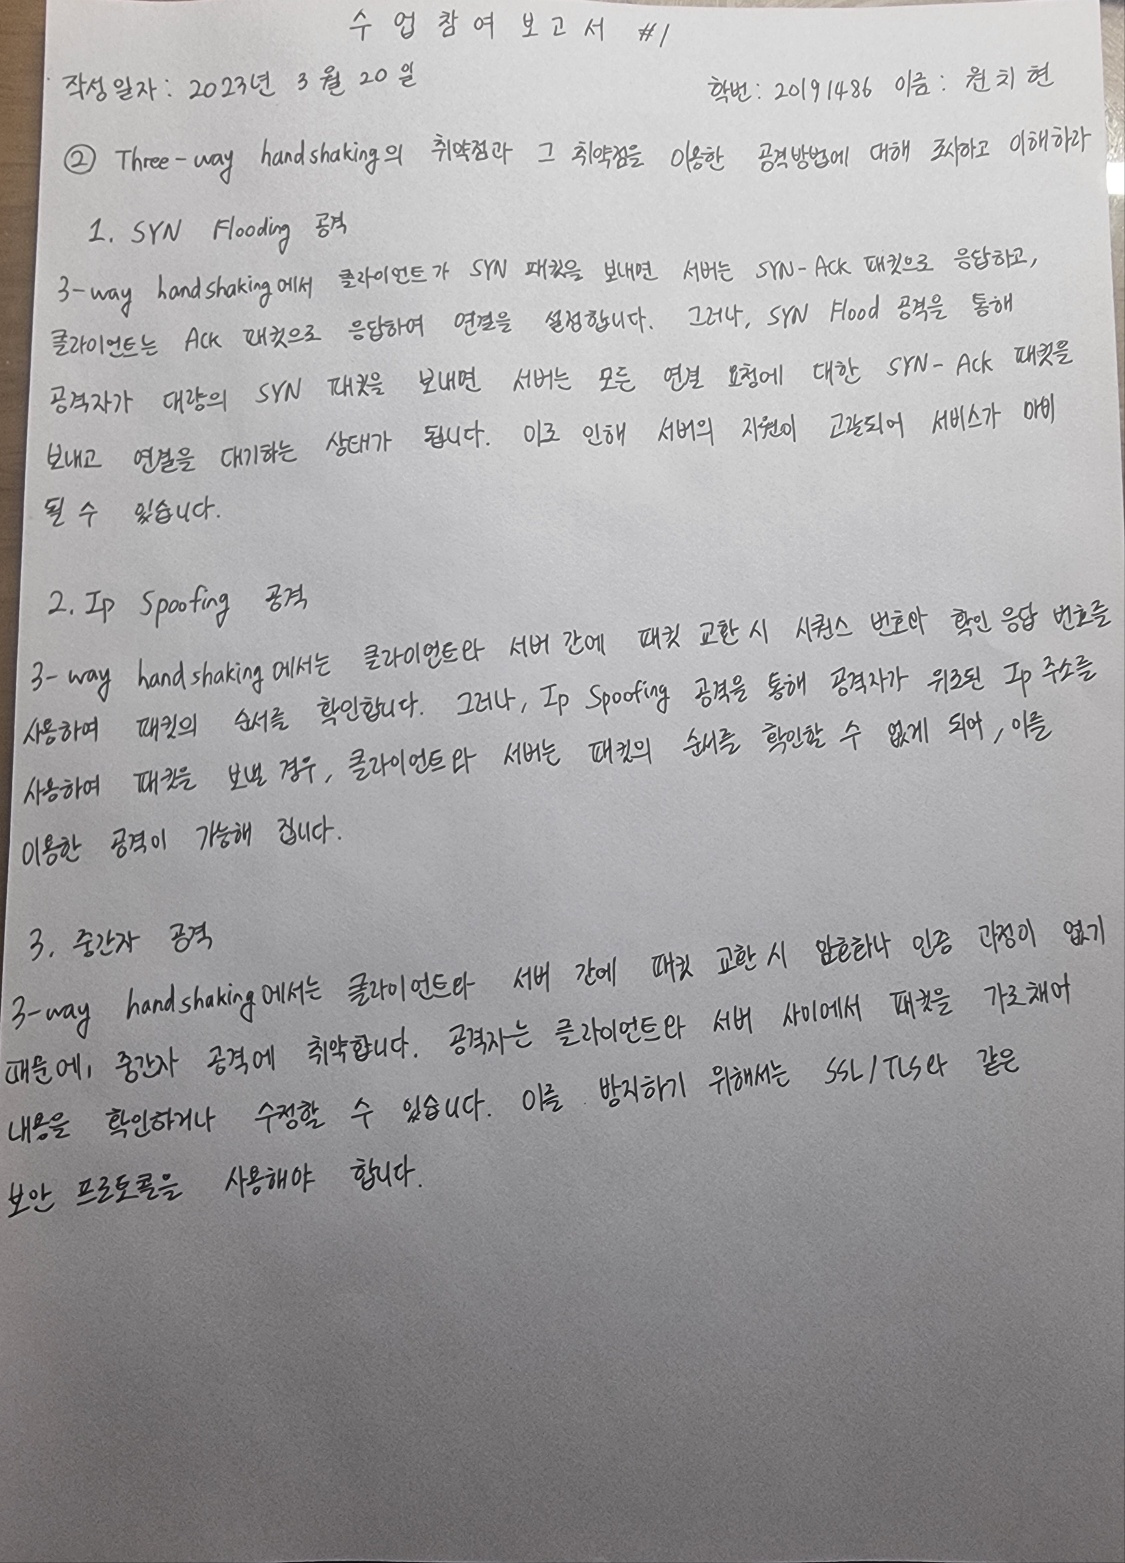 수업참여보고서 #1
작성일자: 2023년 3월 20일 학번: 20191486 이름: 원치현
② Three-way handshaking의 취약점과 그 취약점을 이용한 공격방법에 대해 조사하고 이해하라
1. SYN Flooding 공격
3-way handshaking에서 클라이언트가 SYN 패킷을 보내면 서버는 SYN-Ack 패킷으로 응답하고,
클라이언트는 Ack 패킷으로 응답하여 연결을 설정합니다. 그러나, SYN Flood 공격을 통해
공격자가 대량의 SYN 패킷을 보내면 서버는 모든 연결 요청에 대한 SYN-Ack 패킷을
보내고 연결을 대기하는 상태가 됩니다. 이로 인해 서버의 자원이 고갈되어 서비스가 마비
될 수 있습니다.
2. Ip Spoofing 공격
3-way handshaking에서는 클라이언트와 서버 간에 패킷 교환 시 시퀀스 번호와 확인 응답 번호를
사용하여 패킷의 순서를 확인합니다. 그러나, Ip Spoofing 공격을 통해 공격자가 위조된 Ip 주소를
사용하여 패킷을 보낼 경우, 클라이언트와 서버는 패킷의 순서를 확인할 수 없게 되어, 이를
이용한 공격이 가능해 집니다.
3. 중간자 공격
3-way handshaking에서는 클라이언트와 서버 간에 패킷 교환 시 암호화나 인증 과정이 없기
때문에, 중간자 공격에 취약합니다. 공격자는 클라이언트와 서버 사이에서 패킷을 가로채어
내용을 확인하거나 수정할 수 있습니다. 이를 방지하기 위해서는 SSL/TLS와 같은
보안 프로토콜을 사용해야 합니다.